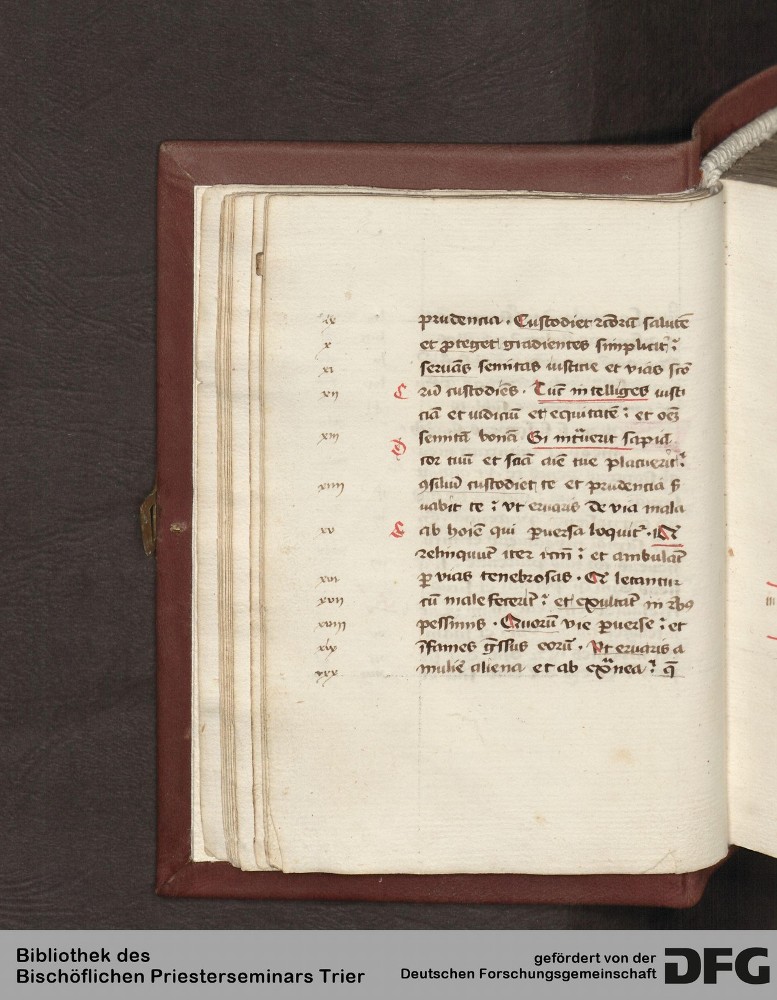 ix prudencia . Custodiet rectorū salutē
x et ꝓteget gradientes simplicit͛ ;
xi seruās semitas iusticie et vias scō
xij C rū custodiēs . Tūc intelliges iusti
ciā et iudiciū et equitatē ; et oēȝ
xiij semitā bonā . Si int͛uerit sapiā
D cor tuū et sciā aīe tue placuerit ;
xiiij ꝯsiliū custodiet te et prudencia ẜ
uabit te ; vt eruaris de via mala
xv E ab hoīe qui ꝑuersa loquit͛ .
relinquūt iter rcm̄ ; et ambulāt
xvi ꝑ vias tenebrosas . Qͥ letantur
xvij cū male fecerīt ; et exultāt in rebꝯ
xviij pessimis . Quorū vie ꝑuerse ; et
xix īfames gͤssus eorū . Vt eruaris a
muliē aliena et ab exͣnea ; q̄
Bibliothek des
Bischöflichen Priesterseminars Trier
gefördert von der
Deutschen Forschungsgemeinschaft
DFG